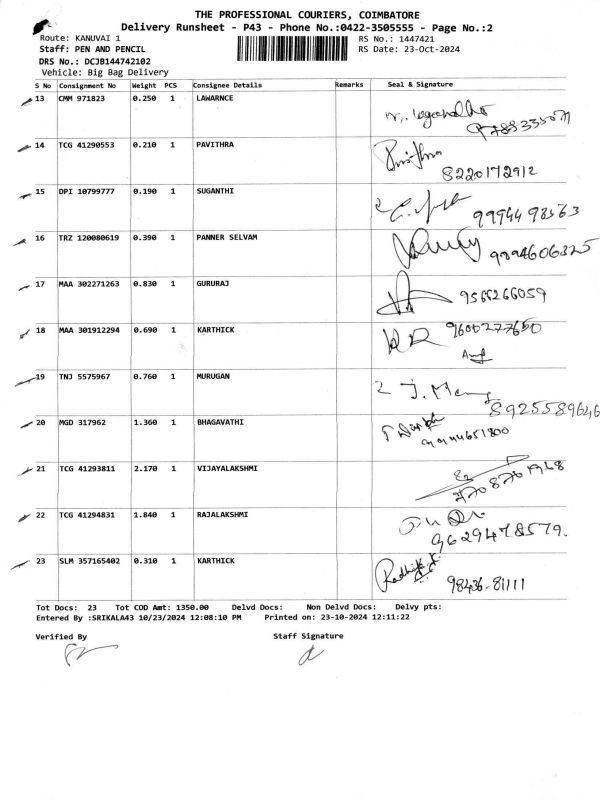 THE PROFESSIONAL COURIERS, COIMBATORE
Delivery Runsheet - P43 - Phone No.:0422-3505555 - Page No.:2
Route: KANUVAI 1 RS No.: 1447421
Staff: PEN AND PENCIL RS Date: 23-Oct-2024
DRS No.: DCJB144742102
Vehicle: Big Bag Delivery
S No Consignment No Weight PCS Consignee Details Remarks Seal & Signature
13 CMM 971823 0.250 1 LAWARNCE
14 TCG 41290553 0.210 1 PAVITHRA
8220172912
15 DPI 10799777 0.190 1 SUGANTHI
9994498563
16 TRZ 120080619 0.390 1 PANNER SELVAM
9894606325
17 MAA 302271263 0.830 1 GURURAJ
9566266059
18 MAA 301912294 0.690 1 KARTHICK
9600277650
19 TNJ 5575967 0.760 1 MURUGAN
8925589646
20 MGD 317962 1.360 1 BHAGAVATHI
21 TCG 41293811 2.170 1 VIJAYALAKSHMI
22 TCG 41294831 1.840 1 RAJALAKSHMI
9629478579.
23 SLM 357165402 0.310 1 KARTHICK
98436-81111
Tot Docs: 23 Tot COD Amt: 1350.00 Delvd Docs: Non Delvd Docs: Delvy pts:
Entered By :SRIKALA43 10/23/2024 12:08:10 PM Printed on: 23-10-2024 12:11:22
Verified By Staff Signature